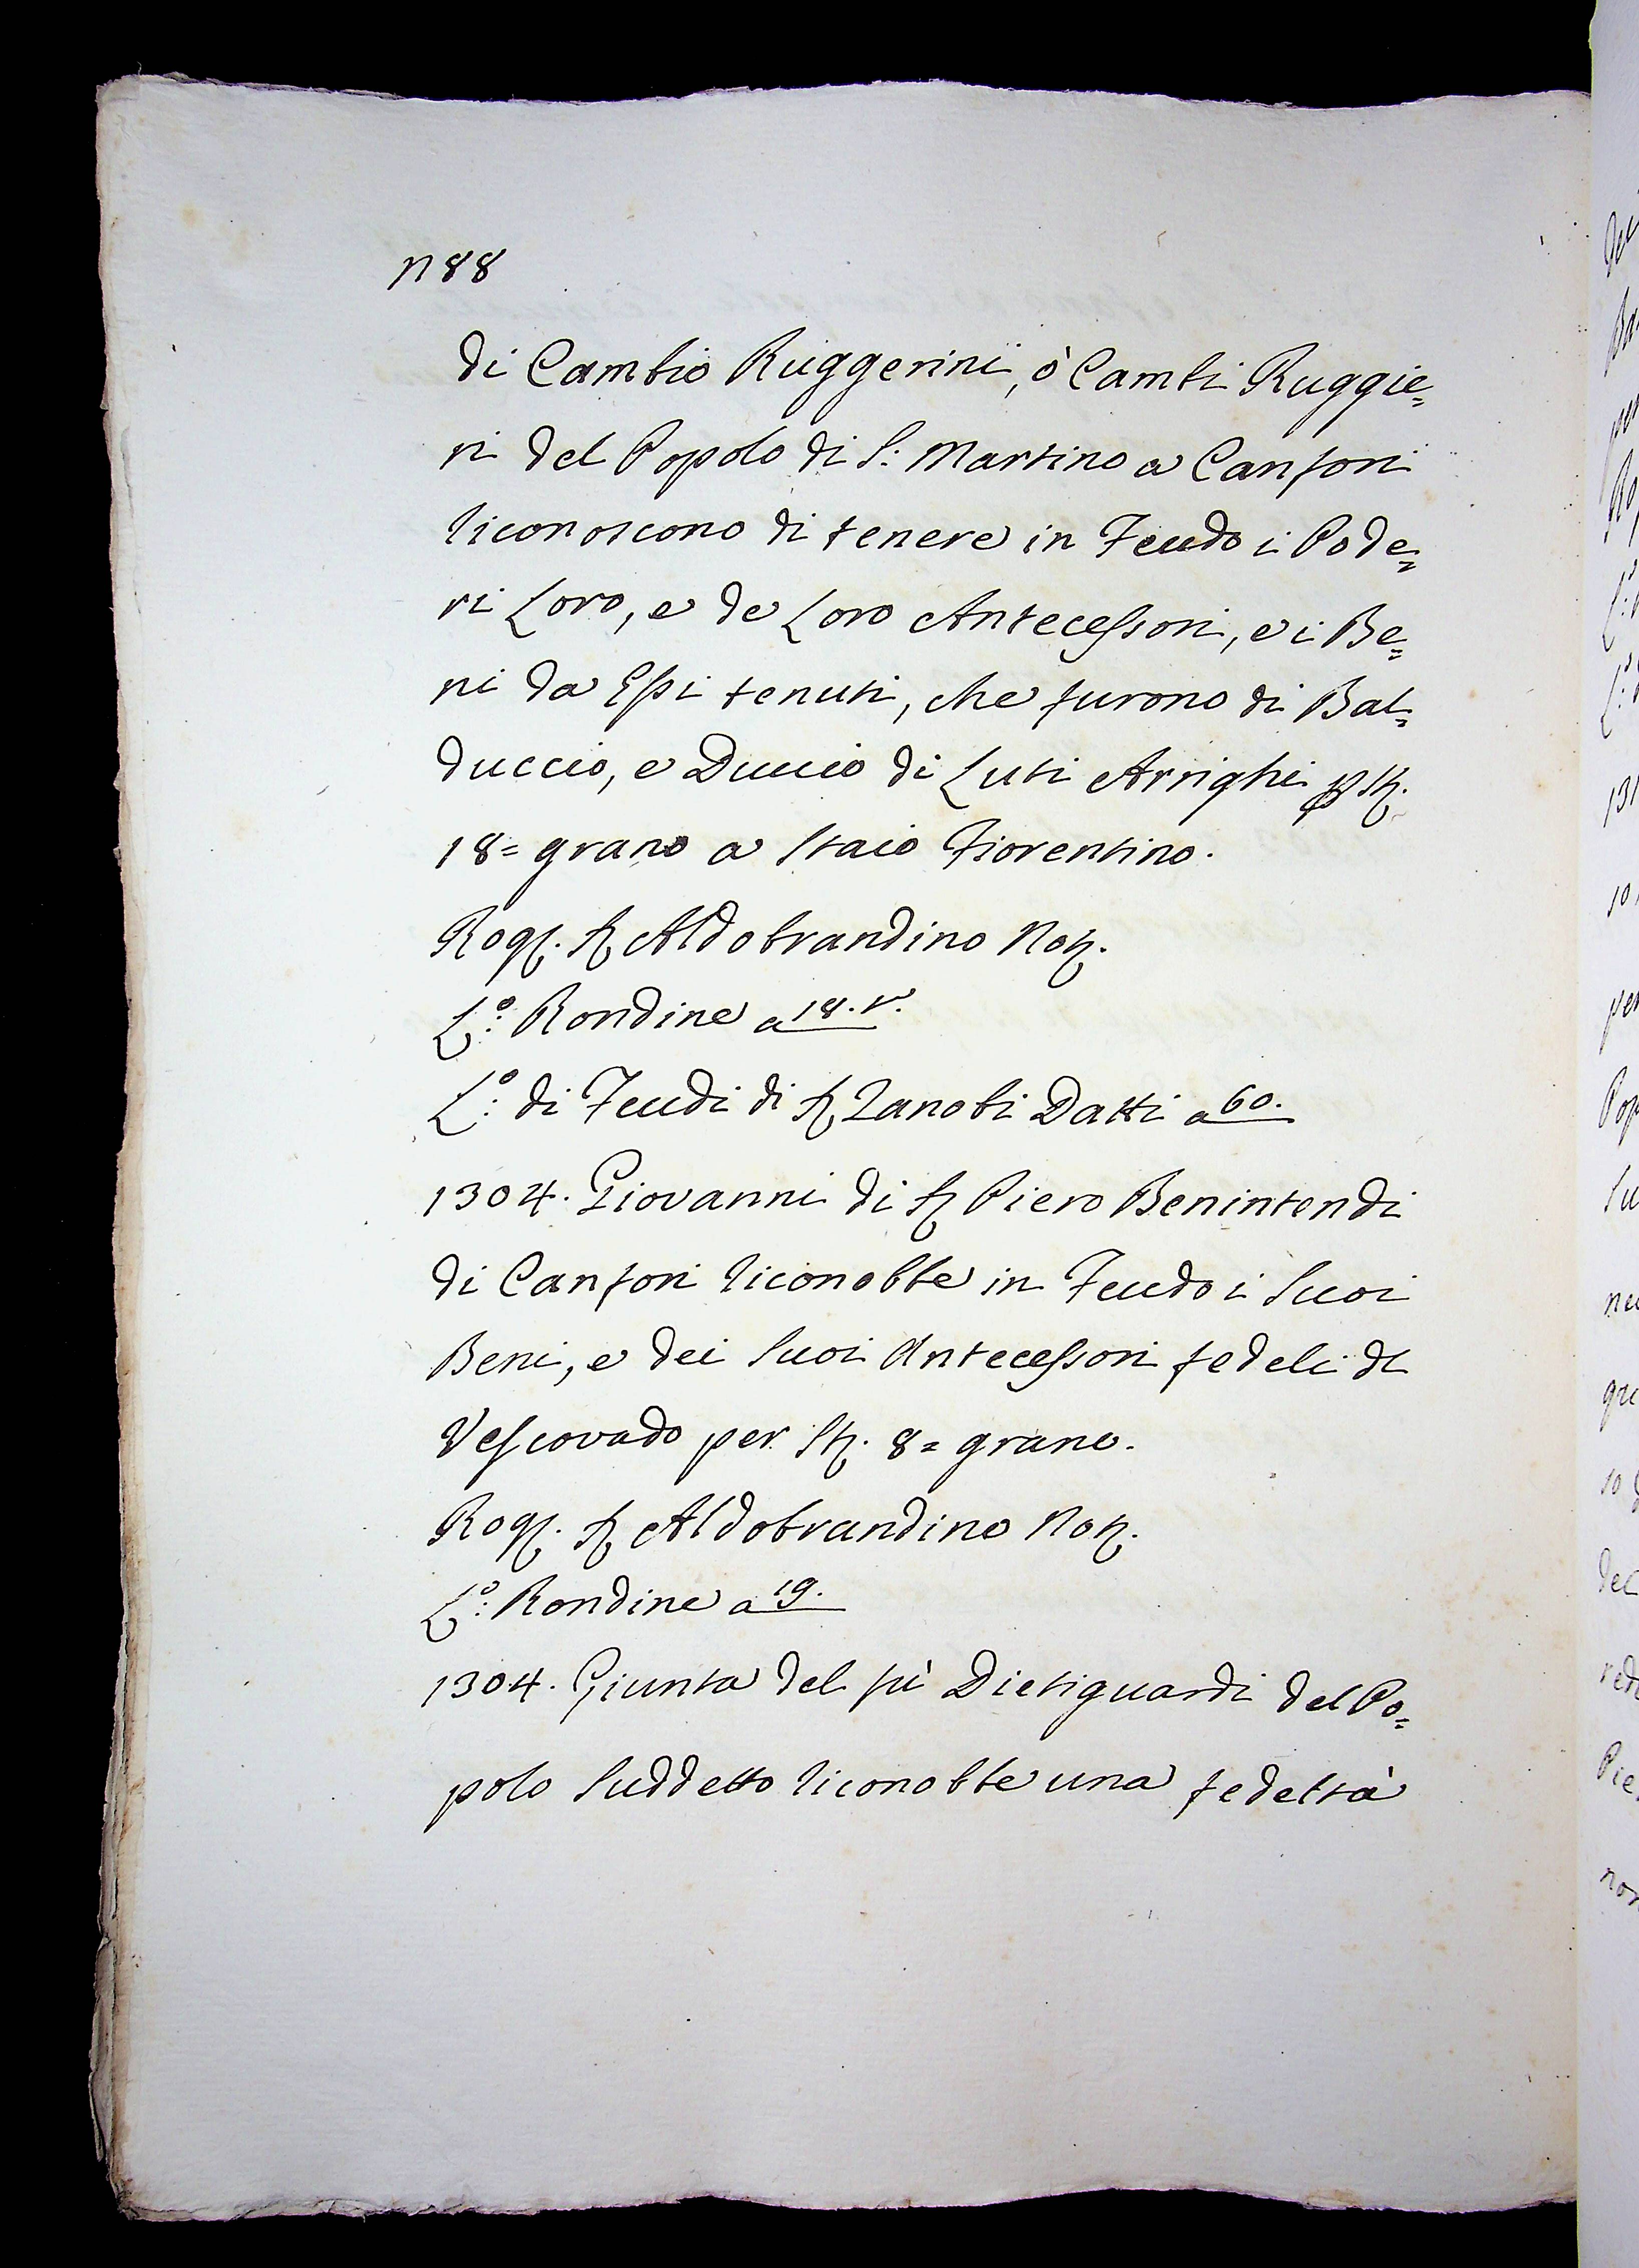 n88
di Cambio Ruggerini, ò Cambi Ruggie=
ri del Popolo di S: Martino a Canfori
riconoscono di tenere in Feudo i Pode=
ri Loro, e de Loro Antecessori, e i Be=
ni da Essi tenuti, che furono di Bal=
duccio, e Duccio di Luti Arrighi p St.
18= grano a Staio Fiorentino.
Rog. S. Aldobrandino Not.
L:o Rondine a 18. r.
L:o di Feudi di S. Zanobi Datti a 60.
1304. Giovanni di S. Piero Benintendi
di Canfori riconobbe in Feudo i Suoi
Beni, e dei Suoi Antecessori fedeli dl
Vescovado per St. 8= grano.
Rog. S. Aldobrandino Not.
L:o Rondine a 19.
1304. Giunta del fù Dietiguardi del Po=
polo Suddetto riconobbe una fedeltà